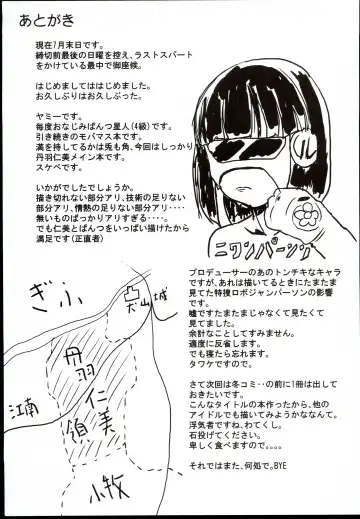 あとがき
現在7月末日です。
締切前最後の日曜を控え、ラストスパート
をかけている最中で御座候。
はじめましてははじめました。
お久しぶりはお久しぶった。
ヤミーです。
毎度おなじみぱんつ星人(4級)です。
引き続きのモバマス本です。
満を持してるかは兎も角、今回はしっかり
丹羽仁美メイン本です。
スケベです。
いかがでしたでしょうか。
描き切れない部分アリ、技術の足りない
部分アリ、情熱の足りない部分アリ・・・・
無いものばっかりアリすぎる・・・・。
でも仁美とぱんつをいっぱい描けたから
満足です(正直者)
ニワンパーソン
プロデューサーのあのトンチキなキャラ
ですが、あれは描いてるときにたまたま
見てた特捜ロボジャンパーソンの影響
です。
嘘ですたまたまじゃなくて見たくて
見てました。
余計なことしてすみません。
適度に反省します。
でも寝たら忘れます。
タワケですので。
さて次回は冬コミ・・の前に1冊は出して
おきたいです。
こんなタイトルの本作ったから、他の
アイドルでも描いてみようかななんて。
浮気者ですね、わてくし。
石投げてください。
卑しく食べますので。。。。
それではまた、何処で。BYE
ぎふ
凸犬山城
丹羽仁美領
江南
小牧